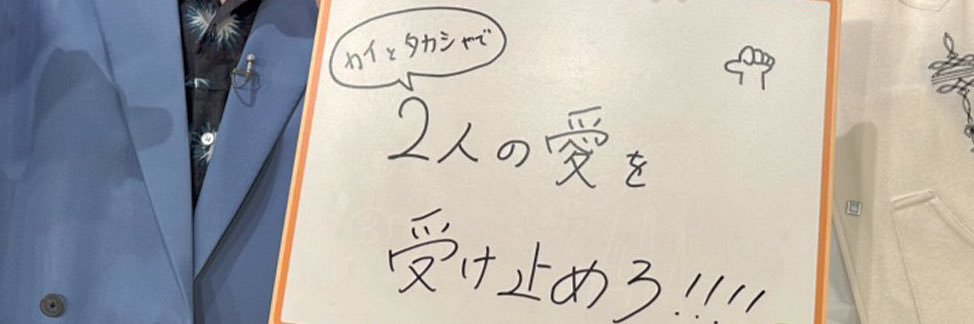 カイとタカシャで
2人の愛を
受け止めろ!!!!